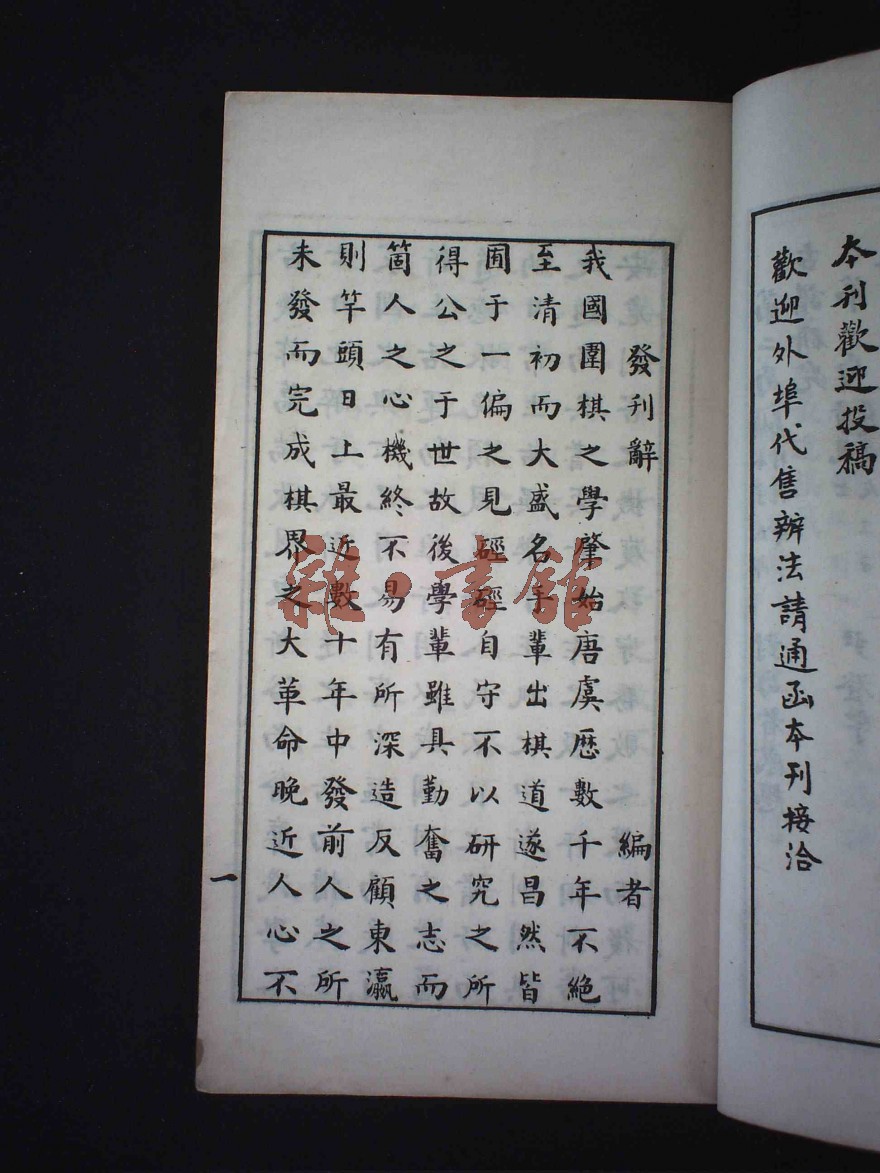 本刊歡迎投稿
歡迎外埠代售辦法請通函本刊接洽
發刊辭 編者
我國圍棋之學肇始唐虞歷數千年不絕
至清初而大盛名手輩出棋道遂昌然皆
囿于一偏之見硜硜自守不以研究之所
得公之于世故後學輩雖具勤奮之志而
箇人之心機終不易有所深造反顧東瀛
則竿頭日上最近數十年中發前人之所
未發而完成棋界之大革命晚近人心不
一